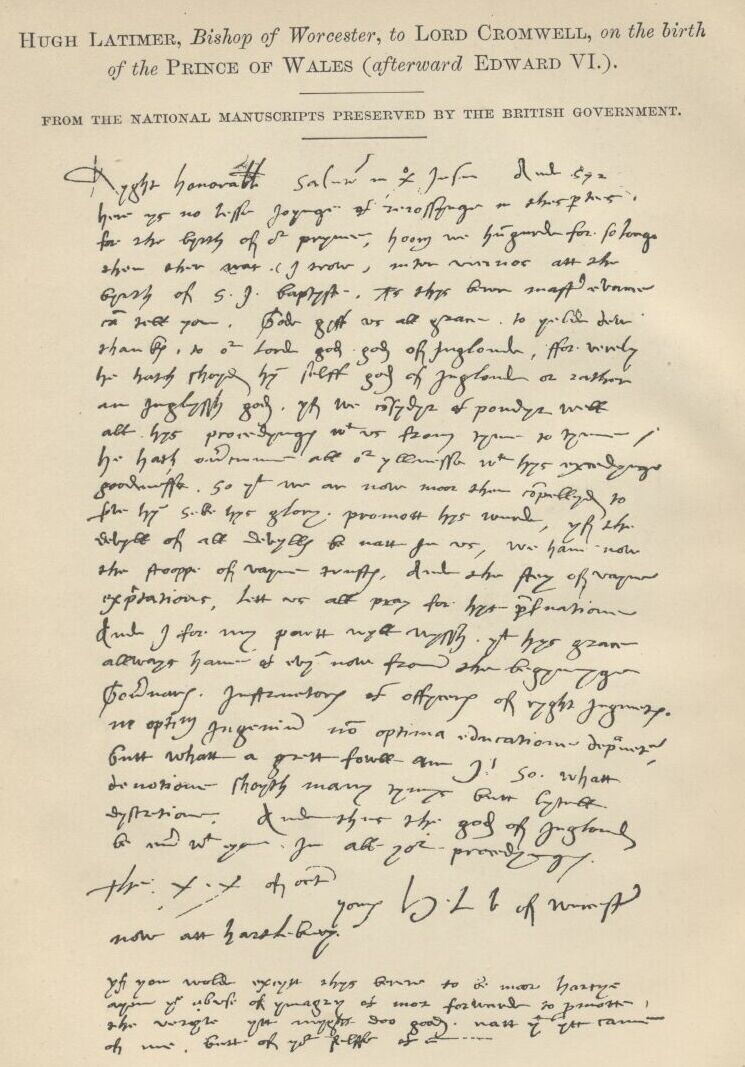 HUGH LATIMER, Bishop of Worcester, to LORD CROMWELL, on the birth
of the PRINCE OF WALES (afterward EDWARD VI.).
FROM THE NATIONAL MANUSCRIPTS PRESERVED BY THE BRITISH GOVERNMENT.
Ryght honorable Salute in X Jesu And Syr
here ys no lesse joynge & reiossynge in thes partees
for the byrth of or prynce, hoom we hungurde for so longe
then ther was (I trow, inter vicinos att the
byrth of S. J. baptyste. As thys berer mastr evance
ca tell you. Gode gyff us all grace to yelde dew
thanks, to or lord god god of Inglonde, ffor verely
he hath shoyd hy selff god of Inglonde or rather
an Inglyssh god. yf we cosydyr & pondyr well
all hys procedynges wt us from tyme to tyme /
he hath overcumme all or yllnesse wt hys excedynge
goodnesse. So yt we ar now moor then copellyd to
serve hy seke hys glory. promott hys wurde, yf the
devyll of all devylls be natt in us, we have now
the stooppe of vayne trusts, And the stey of vayne
expectations, lett us all pray for hys preservatione
Ande I for my partt wyll wyssh yt hys grace
allways have & evyn now from the begynynge
Governares. Instructores & offycers of ryght jugmente.
ne optimu ingeniu no optima educatione depravetur
butt whatt a grett fowll am I! So. whatt
devotione shoyth many tymys butt lytell
dyscretione. Ande thus the god of Inglond
be ever wt you In all yor procedyngs.
The X.X of octr
yours H. L b of wurcestr
now att hartlebury.
yf you wolde excytt thys berer to be moor hartye
ayen ye abuse of ymagry & mor forwarde to promotte
the veryte ytt myght doo good. natt yt ytt came
of me, butt of yor selffe &c